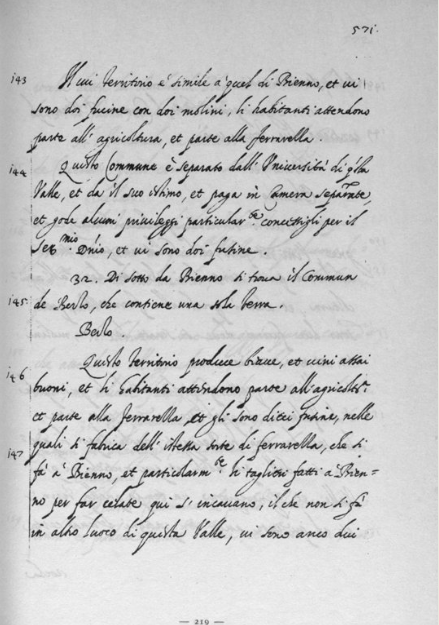 571.
143 Il cui territorio è simile à quel di Bienno, et vi
sono doi fucine con doi molini, li habitanti attendono
parte all' agricoltura, et parte alla ferrarella.
144 Questo Commune è separato dall' Università di q.sta
Valle, et dà il suo estimo, et paga in Camera separ.te
et gode alcuni privileggi particular.te concessigli per il
Ser.mo Dnio, et vi sono doi fusine.
32. Di sotto da Bienno si trova il Commun
145. de Berzo, che contiene una sola terra.
Berzo.
Questo Territorio produce biave, et vini assai
146 buoni, et li habitanti attendono parte all' agricolt.a
et parte alla Ferrarella, et gli sono dieci fusine, nelle
147 quali si fabrica dell' istessa sorte di ferrarella, che si
fà à Bienno, et particolarm.te li taglieri fatti à Bien=
no per far celate qui s' incavano, il che non si fà
in altro luoco di questa Valle, vi sono anco dui
— 219 —